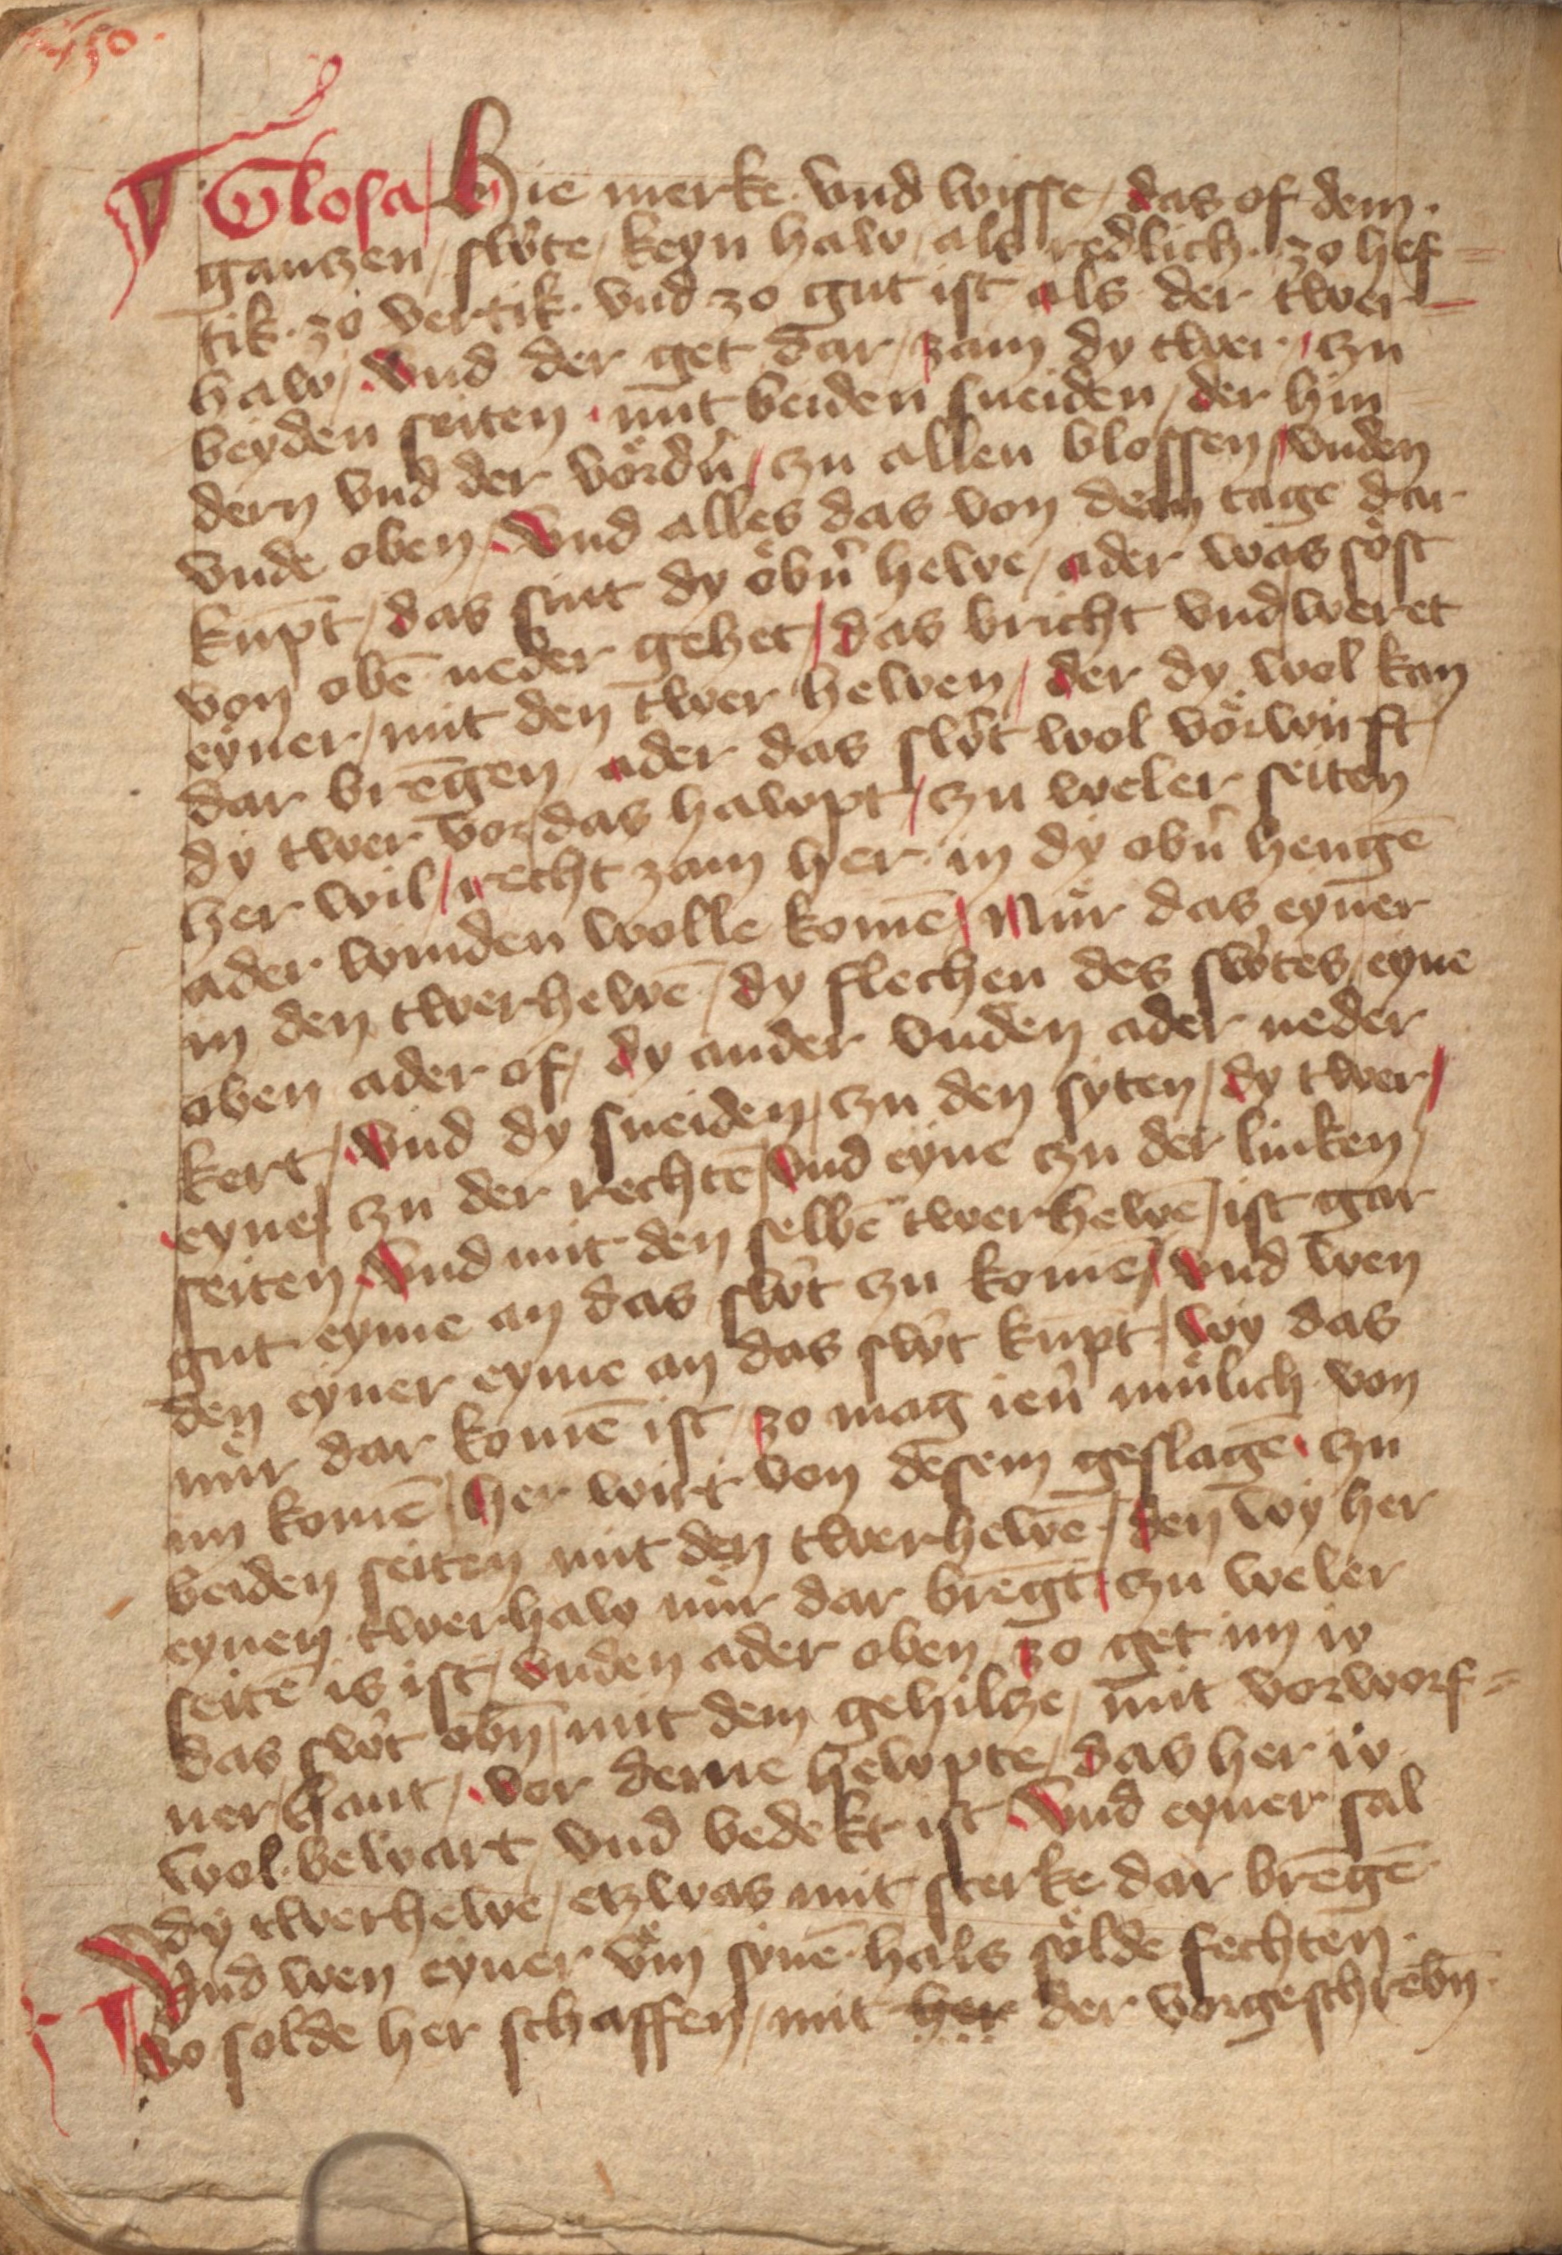 Glosa / Hie merke vnd wisse / das of dem
ganczen / sw̾te / keyn haw / als redlich · zo hef=
tik · zo vertik · vnd zo gut ist als der twer=
haw / Vnd der get dar / zam dy twer / czu
beyden seiten · mit beiden sneiden / der hin
dern vnd der vördn̾ / czu allen blossen / vnden
vnde oben / Vnd alles das von dem tage dar
kūpt / das sint dy öbn̾ hewe / ader was söst
von obē neder gehet / das bricht vnd weret
eyner / mit den twer hewen / der dy wol kan
dar brēgen / ader das sw̾t wol vörwirft
dy twer vor das hawpt / czu weler seiten
her wil / recht zam her in dy obn̾ hengē
ader winden wolle komē / Nuͤr das eyner
in den twerhewē / dy flechen des sw̾tes / eyne
oben ader of / dy ander vnden ader neder
kert / Vnd dy sneiden / czu den syten / dy twer /
eyne / czu der rechtē / vnd eyne czu der linken /
seiten / Vnd mit den selbē twerhewē / ist gar
gut eyme an das sw̾t zu komē / vnd wen
den eyner eyme an das sw̾t kūpt / wy das
nuͤr dar komē ist / zo mag ien̾ muͤlich von
im komē / her wirt von desem geslagē · czu
beiden seiten mit den twerhewē / den wy her
eynem twerhaw nuͤr dar brēgt / czu weler
seitē is ist / vnden ader oben / zo get im io
das sw̾t obn̄ / mit dem gehilcze / mit vorworf=
ner / hant / vor deme hewpte / das her io
wol bewart / vnd bedekt ist / Vnd eyner sal
dy twerhewe / etzwas mit sterke dar brēgē
Vnd wen eyner vm̈ synē hals sölde fechten ·
zo solde her schaffen / mit her der vorgeschrebn̄